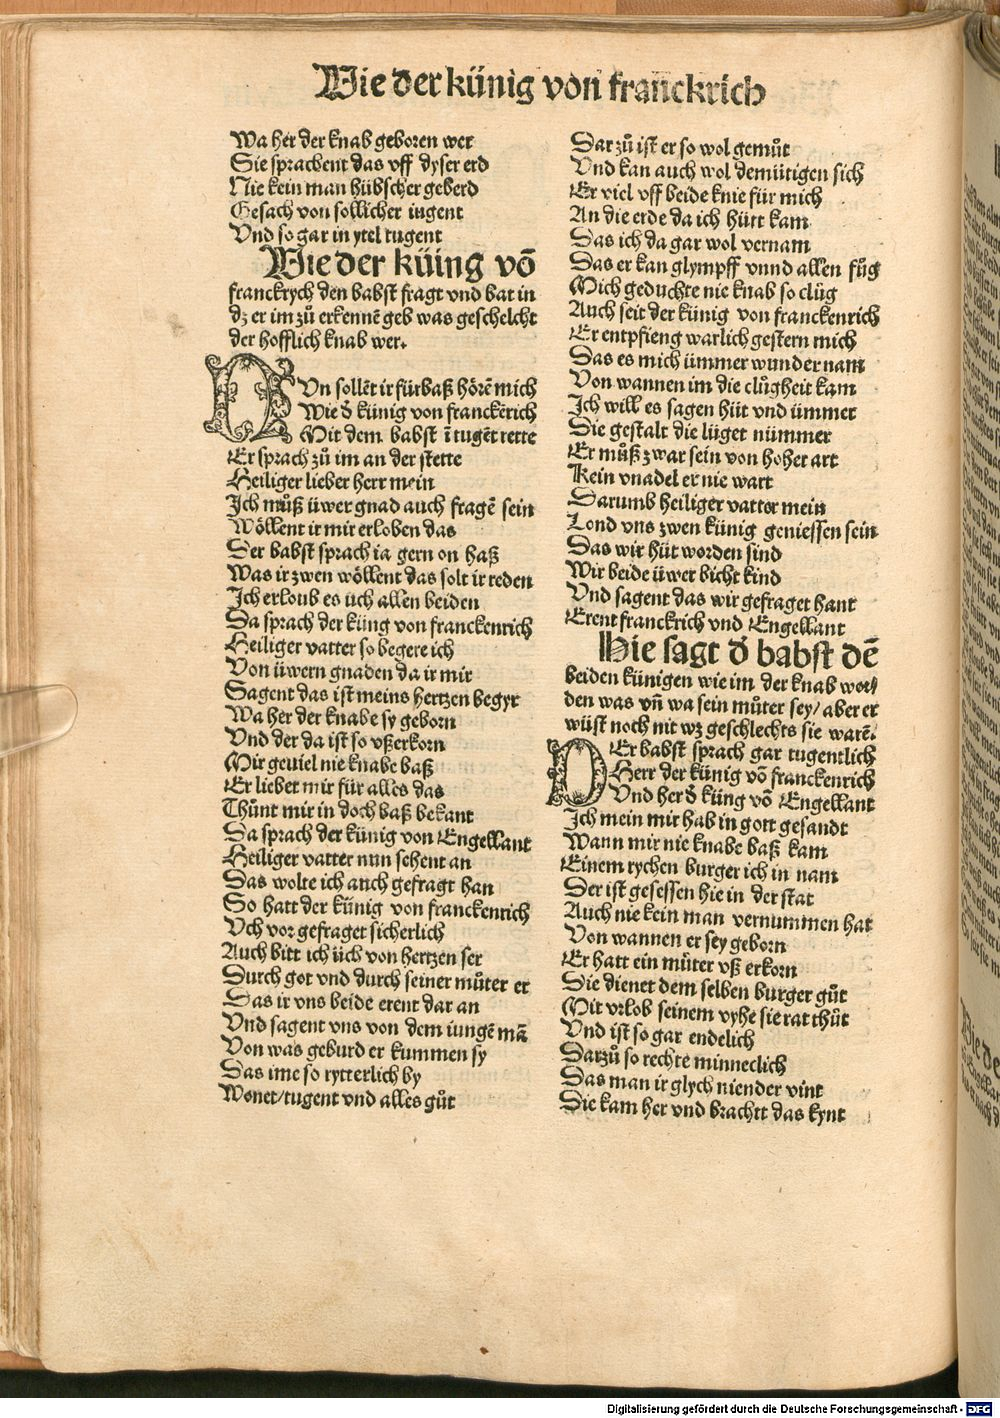 Wie der künig von franckrich
Wa her der knab geboren wer
Sie sprachent das vff dyser erd
Nie kein man hübscher geberd
Gesach von sollicher iugent
Vnd so gar in ytel tugent
Wie der küing võ
franckrych den babst fragt vnd bat in
dz er im zů erkennẽ geb was geschelcht
der hofflich knab wer.
NVn sollẽt ir fürbaß hörẽ mich
Wie d̕ künig von franckẽrich
Mit dem babst ĩ tugẽt rette
Er sprach zů im an der stette
Heiliger lieber herr mein
Ich můß üwer gnad auch fragẽ sein
Wöllent ir mir erloben das
Der babst sprach ia gern on haß
Was ir zwen wöllent das solt ir reden
Ich erloub es üch allen beiden
Da sprach der küing von franckenrich
Heiliger vatter so begere ich
Von üwern gnaden da ir mir
Sagent das ist meins hertzen begyr
Wa her der knabe sy geborn
Vnd der da ist so vßerkorn
Mir geuiel nie knabe baß
Er lieber mir für alles das
Thünt mir in doch baß bekant
Da sprach der künig von Engellant
Heiliger vatter nun sehent an
Das wolte ich auch gefragt han
So hatt der künig von franckenrich
Vch vor gefraget sicherlich
Auch bitt ich üch von hertzen ser
Durch got vnd durch seiner můter er
Das ir vns beide erent dar an
Vnd sagent vns von dem iungẽ mã
Von was geburd er kummen sy
Das ime so rytterlich by
Wonet/tugent vnd alles gůt
Dar zů ist er so wol gemůt
Vnd kan auch wol demütigen sich
Er viel vff beide knie für mich
An die erde da ich hütt kam
Das ich da gar wol vernam
Das er kan glympff vnnd allen fůg
Mich geduchte nie knab so clůg
Auch seit der künig von franckenrich
Er entpfieng warlich gestern mich
Das es mich ümmer wunder nam
Von wannen im die clůgheit kam
Ich will es sagen hüt vnd ümmer
Die gestalt die lüget nümmer
Er můß zwar sein von hoher art
Kein vnadel er nie wart
Darumb heiliger vatter mein
Lond vns zwen künig geniessen sein
Das wir hüt worden sind
Wir beide üwer bicht kind
Vnd sagent das wir gefraget hant
Erent franckrich vnd Engellant
Hie sagt d̕ babst dẽ
beiden künigen wie im der knab wor/
den was vñ wa sein můter sey/ aber er
wüst noch nit wz geschlechts sie warẽ.
DEr babst sprach gar tugentlich
Herr der künig võ franckenrich
Vnd her d̕ küing võ Engellant
Ich mein mir hab in gott gesandt
Wann mir nie knabe baß kam
Einem rychen burger ich in nam
Der ist gesessen hie in der stat
Auch nie kein man vernummen hat
Von wannen er sey geborn
Er hatt ein můter vß erkorn
Die dienet dem selben burger gůt
Mit vrlob seinem vyhe sie rat thůt
Vnd ist so gar endelich
Darzů so rechte minneclich
Das man ir glych niender vint
Die kam her vnd brachtt das kynt
Digitalisierung gefördert durch die Deutsche Forschungsgemeinschaft - DFG